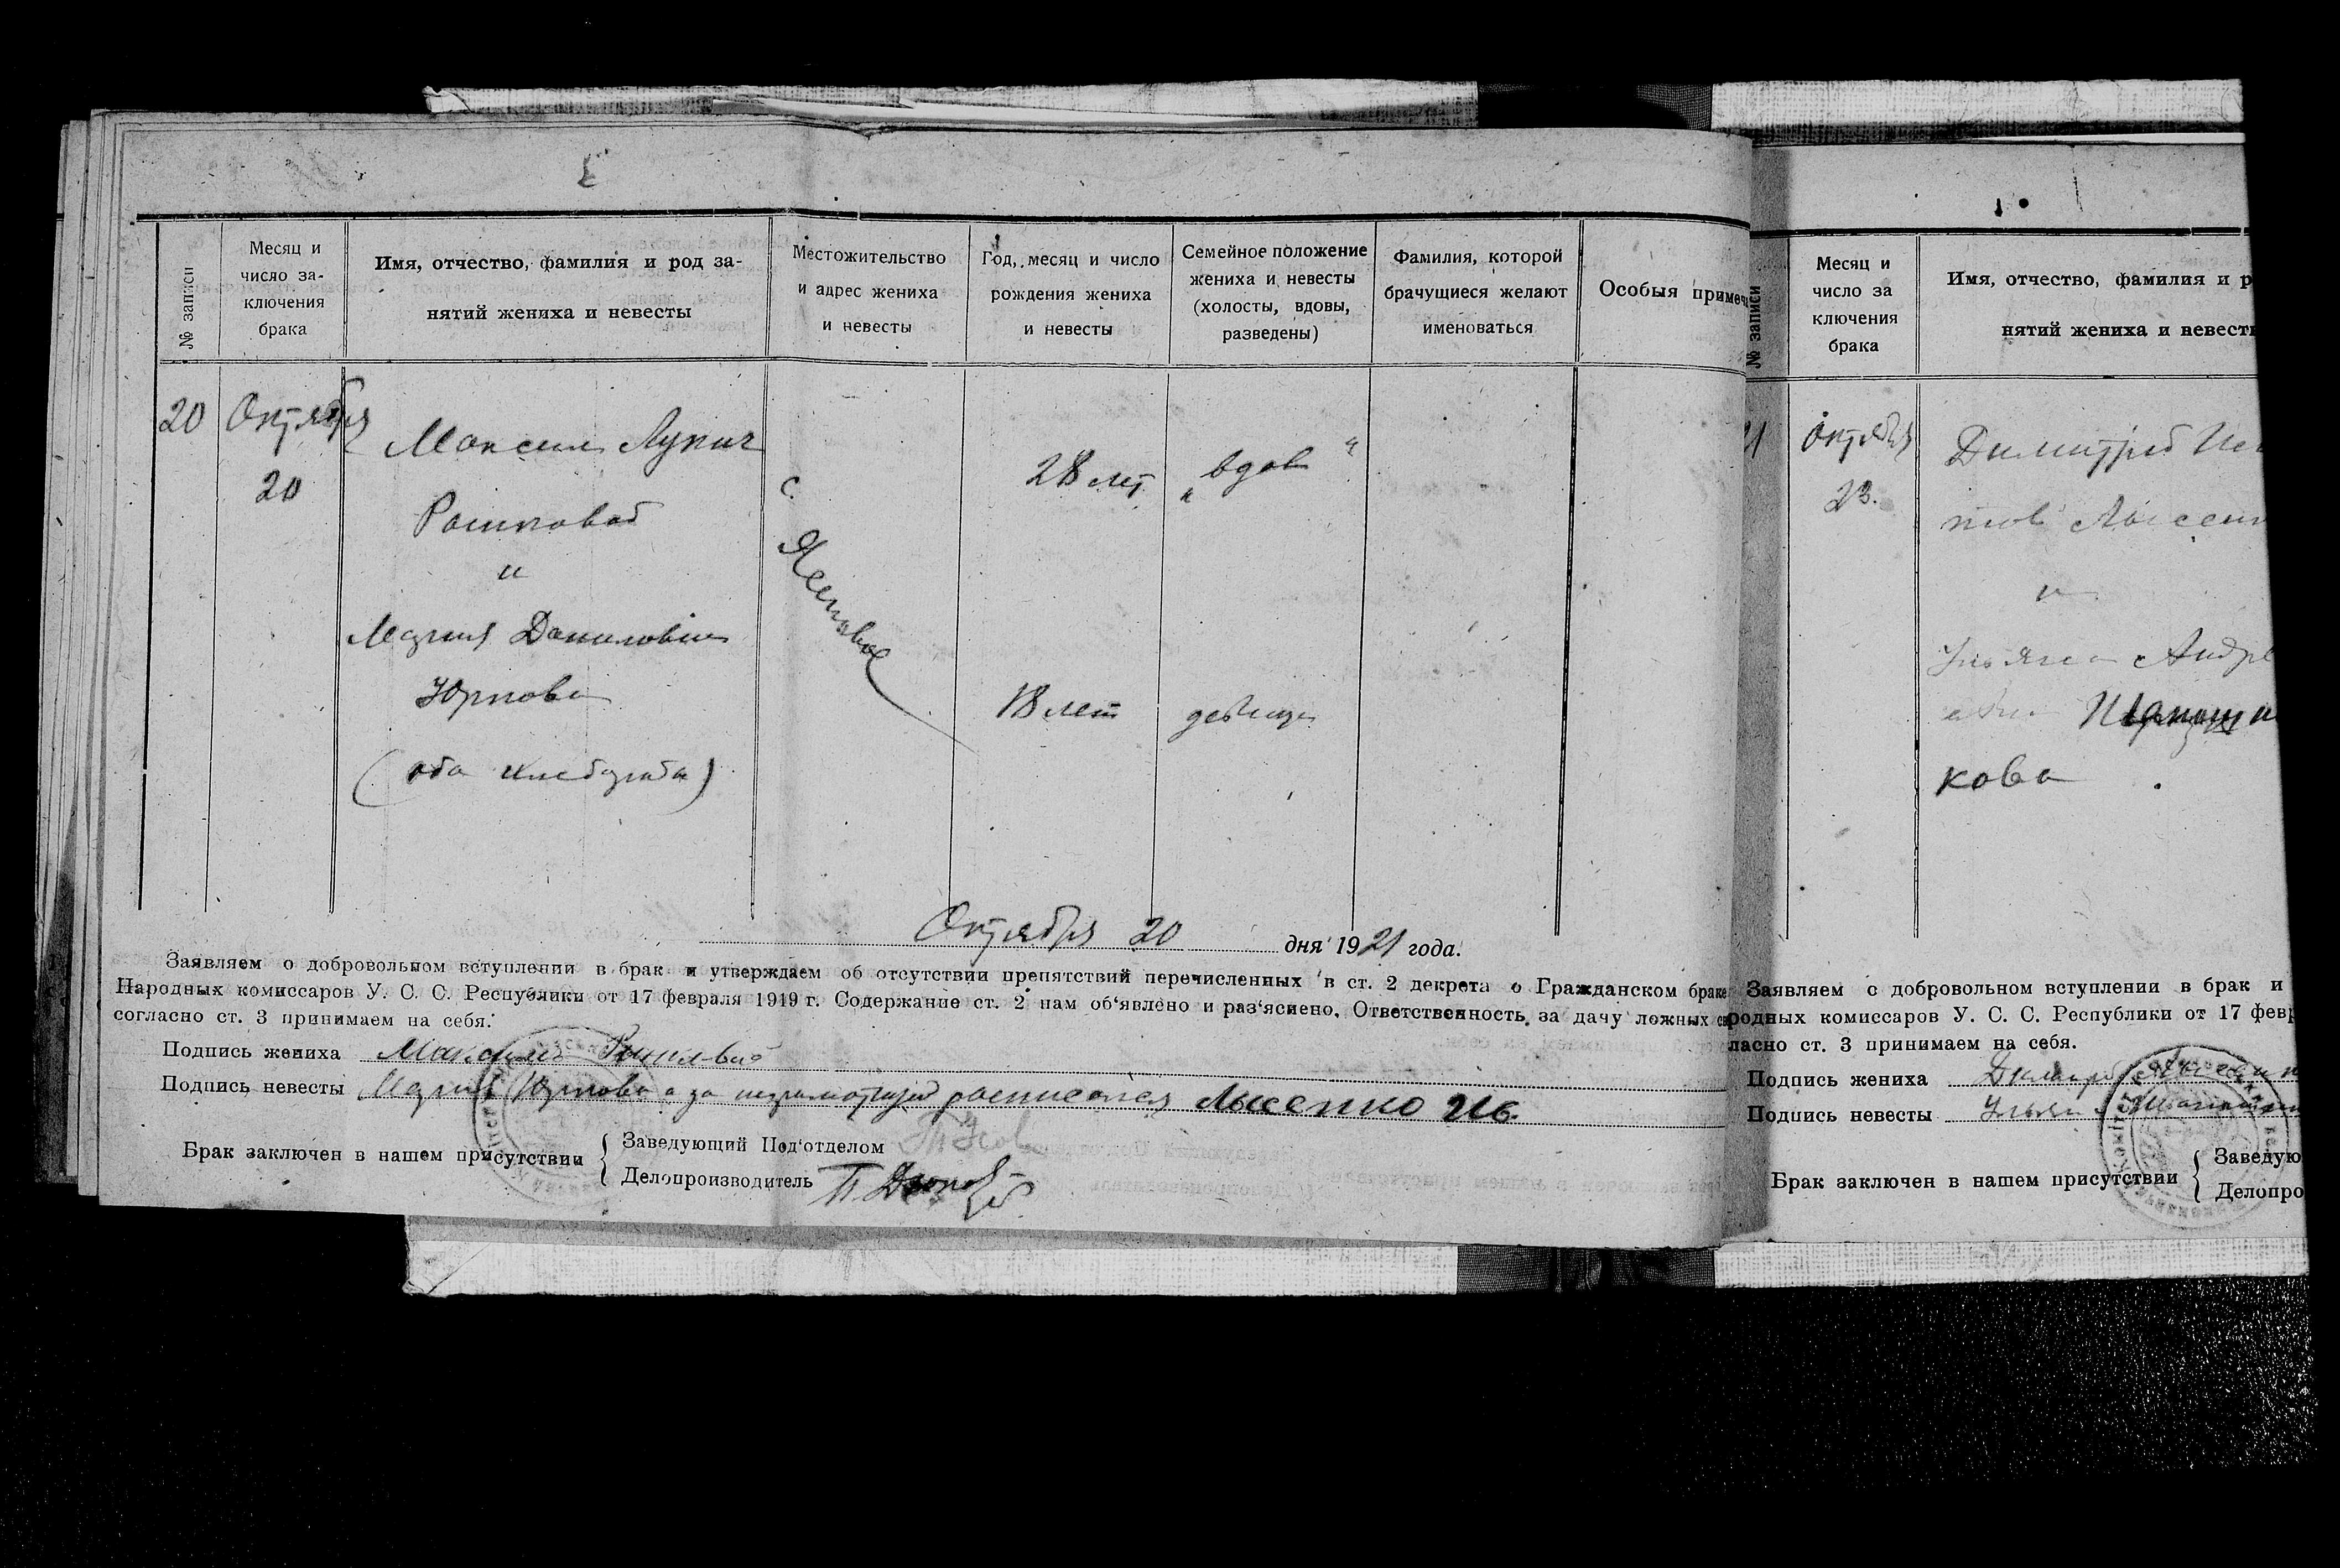 № записи
Месяц и
число за-
ключения
брака
Имя, отчество, фамилия и род за-
нятий жениха и невесты
Местожительство
и адрес жениха
и невесты
Год, месяц и число
рождения жениха
и невесты
Семейное положение
жениха и невесты
(холосты, вдовы,
разведены)
Фамилия, которой
брачущиеся желают
именоваться
Особыя примеча
20
Октября
20
Максим Лукич
и
Мария Даниловна
Юркова
(оба хлебороба)
с.
28 лет
„вдов"
18 лет
девица
Октября 20 дня 1921 года.
Заявляем о добровольном вступлении в брак и утверждаем об отсутствии препятствий перечисленных в ст. 2 декрета о Гражданском браке
Народных комиссаров У. С. С. Республики от 17 февраля 1919 г. Содержание ст. 2 нам об'явлено и раз'яснено. Ответственность за дачу ложных св
согласно ст. 3 принимаем на себя.
Подпись жениха Максим
Подпись невесты Мария Юркова а за неграмотную расписался Лысенко Ив.
Брак заключен в нашем присутствии
Заведующий Под'отделом
Делопроизводитель
№ записи
Месяц и
число за
ключения
брака
Имя, отчество, фамилия и р
нятий жениха и невест
21
Октября
23.
Димитрий
и
Ульяна Андре
кова
Заявляем о добровольном вступлении в брак и
родных комиссаров У. С. С. Республики от 17 февр
ласно ст. 3 принимаем на себя.
Подпись жениха
Подпись невесты
Брак заключен в нашем присутствии
Заведую
Делопро